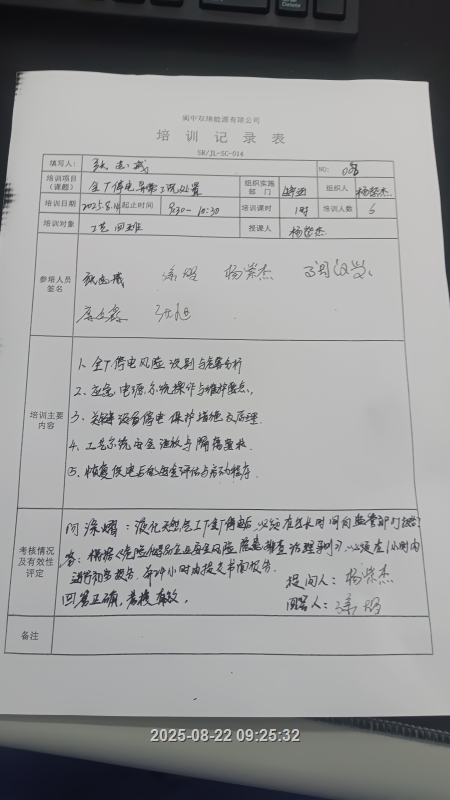 Delete
阆中双瑞能源有限公司
培 训 记 录 表
SR/JL-SC-014
填写人: 张志斌 NO:
培训项目(课题) 全厂停电异常工况处置 组织实施部 门 组织人 杨崇杰
培训日期 2025.8. 起止时间 9:30- 10:30 培训课时 1时 培训人数 6
培训对象 工艺四班 授课人 杨崇杰
参培人员签名 张志斌 涂熠 杨崇杰
培训主要内容
1、全厂停电风险识别与危害分析
2、应急电源系统操作与维护要点.
3、关键设备停电保护措施及原理.
4、工艺系统安全泄放与隔离要求.
5、恢复供电后的安全评估与启动程序.
考核情况及有效性评定
问涂熠:液化天然气工厂全厂停电后,必须在多长时间向监管部门报告?
答:根据《危险化学品企业安全风险隐患排查治理导则》,必须在1小时内
进行初步报告,并24小时内提交书面报告.
提问人:杨崇杰
回答正确,考核有效。
回答人:涂熠
备注
2025-08-22 09:25:32